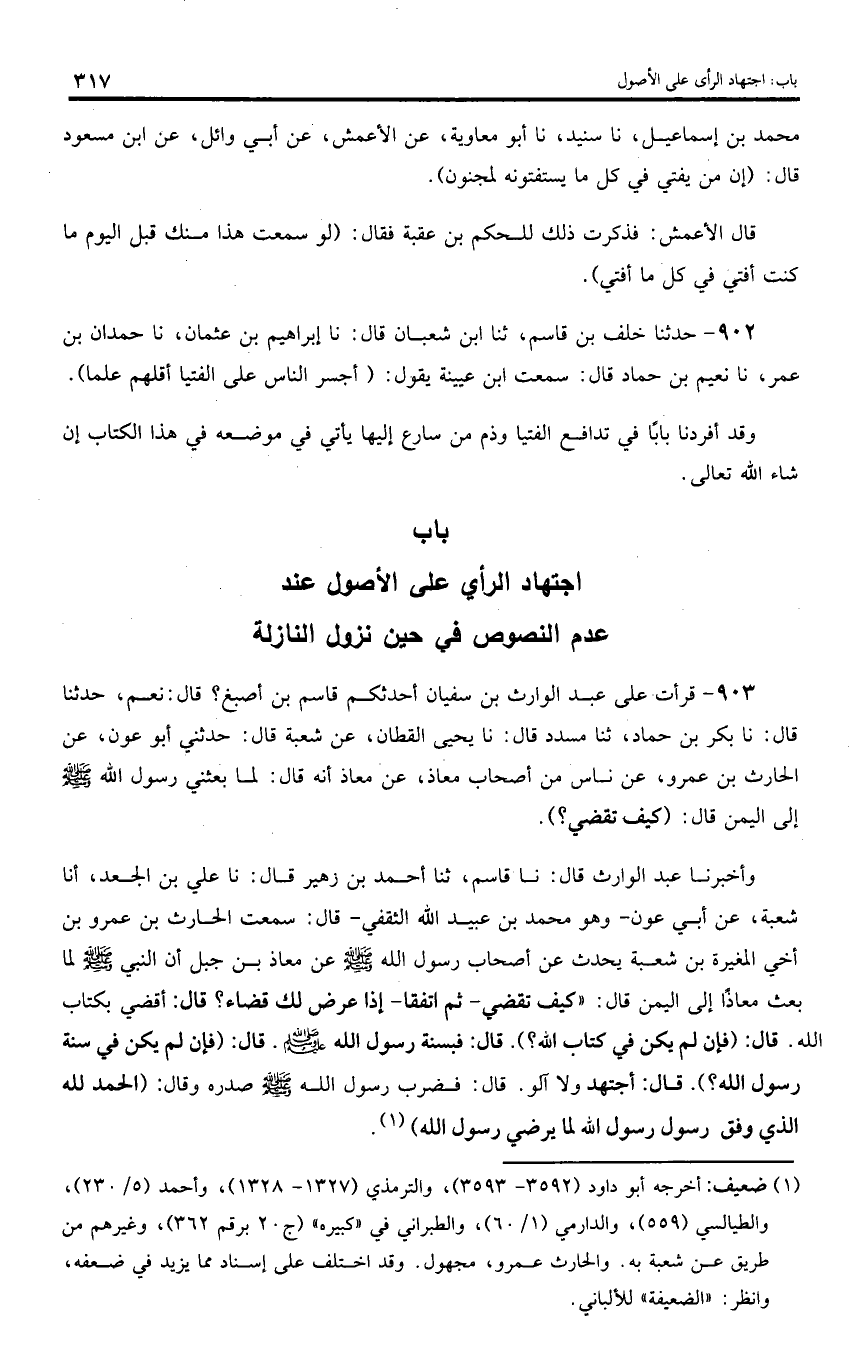 باب: اجتهاد الرأى على الأصول ٣١٧
محمد بن إسماعيـل، نا سنيد، نا أبو معاوية، عن الأعمش، عن أبـي وائل، عن ابن مسعود
قال: (إن من يفتي في كل ما يستفتونه لمجنون).
قال الأعمش: فذكرت ذلك للـحكم بن عقبة فقال: (لو سمعت هذا مـنك قبل اليوم ما
كنت أفتي في كل ما أفتي).
٩٠٢- حدثنا خلف بن قاسم، ثنا ابن شعبـان قال: نا إبراهيم بن عثمان، نا حمدان بن
عمر، نا نعيم بن حماد قال: سمعت ابن عيينة يقول: ( أجسر الناس على الفتيا أقلهم علما).
وقد أفردنا بابًا في تدافـع الفتيا وذم من سارع إليها يأتي في موضـعه في هذا الكتاب إن
شاء الله تعالى.
باب
اجتهاد الرأي على الأصول عند
عدم النصوص في حين نزول النازلة
٩٠٣- قرأت على عبـد الوارث بن سفيان أحدثكـم قاسم بن أصبغ؟ قال:نعـم، حدثنا
قال: نا بكر بن حماد، ثنا مسدد قال: نا يحيى القطان، عن شعبة قال: حدثني أبو عون، عن
الحارث بن عمرو، عن نـاس من أصحاب معاذ، عن معاذ أنه قال: لمـا بعثني رسول الله ﷺ
إلى اليمن قال: (كيف تقضي؟).
وأخبرنـا عبد الوارث قال: نـا قاسم، ثنا أحـمد بن زهير قـال: نا علي بن الجـعد، أنا
شعبة، عن أبـي عون- وهو محمد بن عبيـد الله الثقفي- قال: سمعت الحـارث بن عمرو بن
أخي المغيرة بن شعـبة يحدث عن أصحاب رسول الله ﷺ عن معاذ بـن جبل أن النبي ﷺ لما
بعث معاذًا إلى اليمن قال: «كيف تقضي- ثم اتفقا- إذا عرض لك قضاء؟ قال: أقضي بكتاب
الله. قال: (فإن لم يكن في كتاب الله؟). قال: فبسنة رسول الله ﷺ. قال: (فإن لم يكن في سنة
رسول الله؟). قـال: أجتهد ولا آلو. قال: فـضرب رسول اللـه ﷺ صدره وقال: (الحمد لله
الذي وفق رسول رسول الله لما يرضي رسول الله) (١).
(١) ضعيف: أخرجه أبو داود (٣٥٩٢- ٣٥٩٣)، والترمذي (١٣٢٧- ١٣٢٨)، وأحمد (٥/ ٢٣٠)،
والطيالسي (٥٥٩)، والدارمي (١/ ٦٠)، والطبراني في «كبيره» (ج٢٠ برقم ٣٦٢)، وغيرهم من
طريق عـن شعبة به. والحارث عمـرو، مجهول. وقد اخـتلف على إسـناد مما يزيد في ضـعفه،
وانظر: «الضعيفة» للألباني.